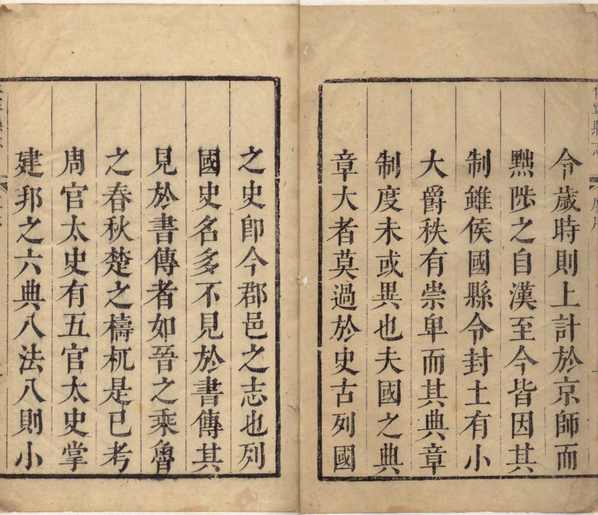 令歲時則上計於京師而
黜陟之自漢至今皆因其
制雖侯國縣令封土有小
大爵秩有崇卑而其典章
制度未或異也夫國之典
章大者莫過於史古列國
之史卽今郡邑之志也列
國史名多不見於書傳其
見於書傳者如晉之乘魯
之春秋楚之檮杌是已考
周官太史有五官太史掌
建邦之六典八法八則小